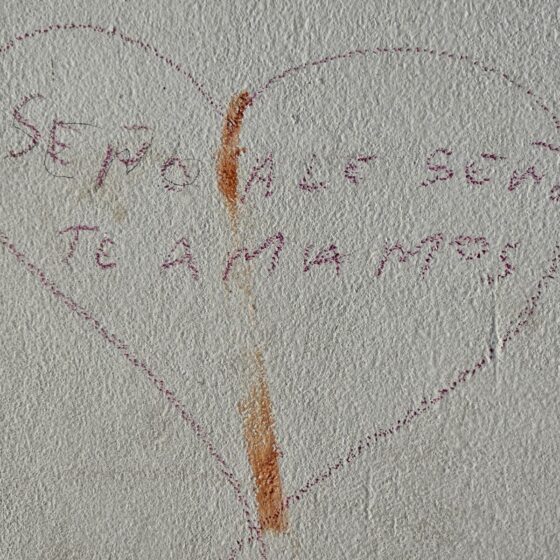 SEÑO ALE SEÑ
TE AMAMOS